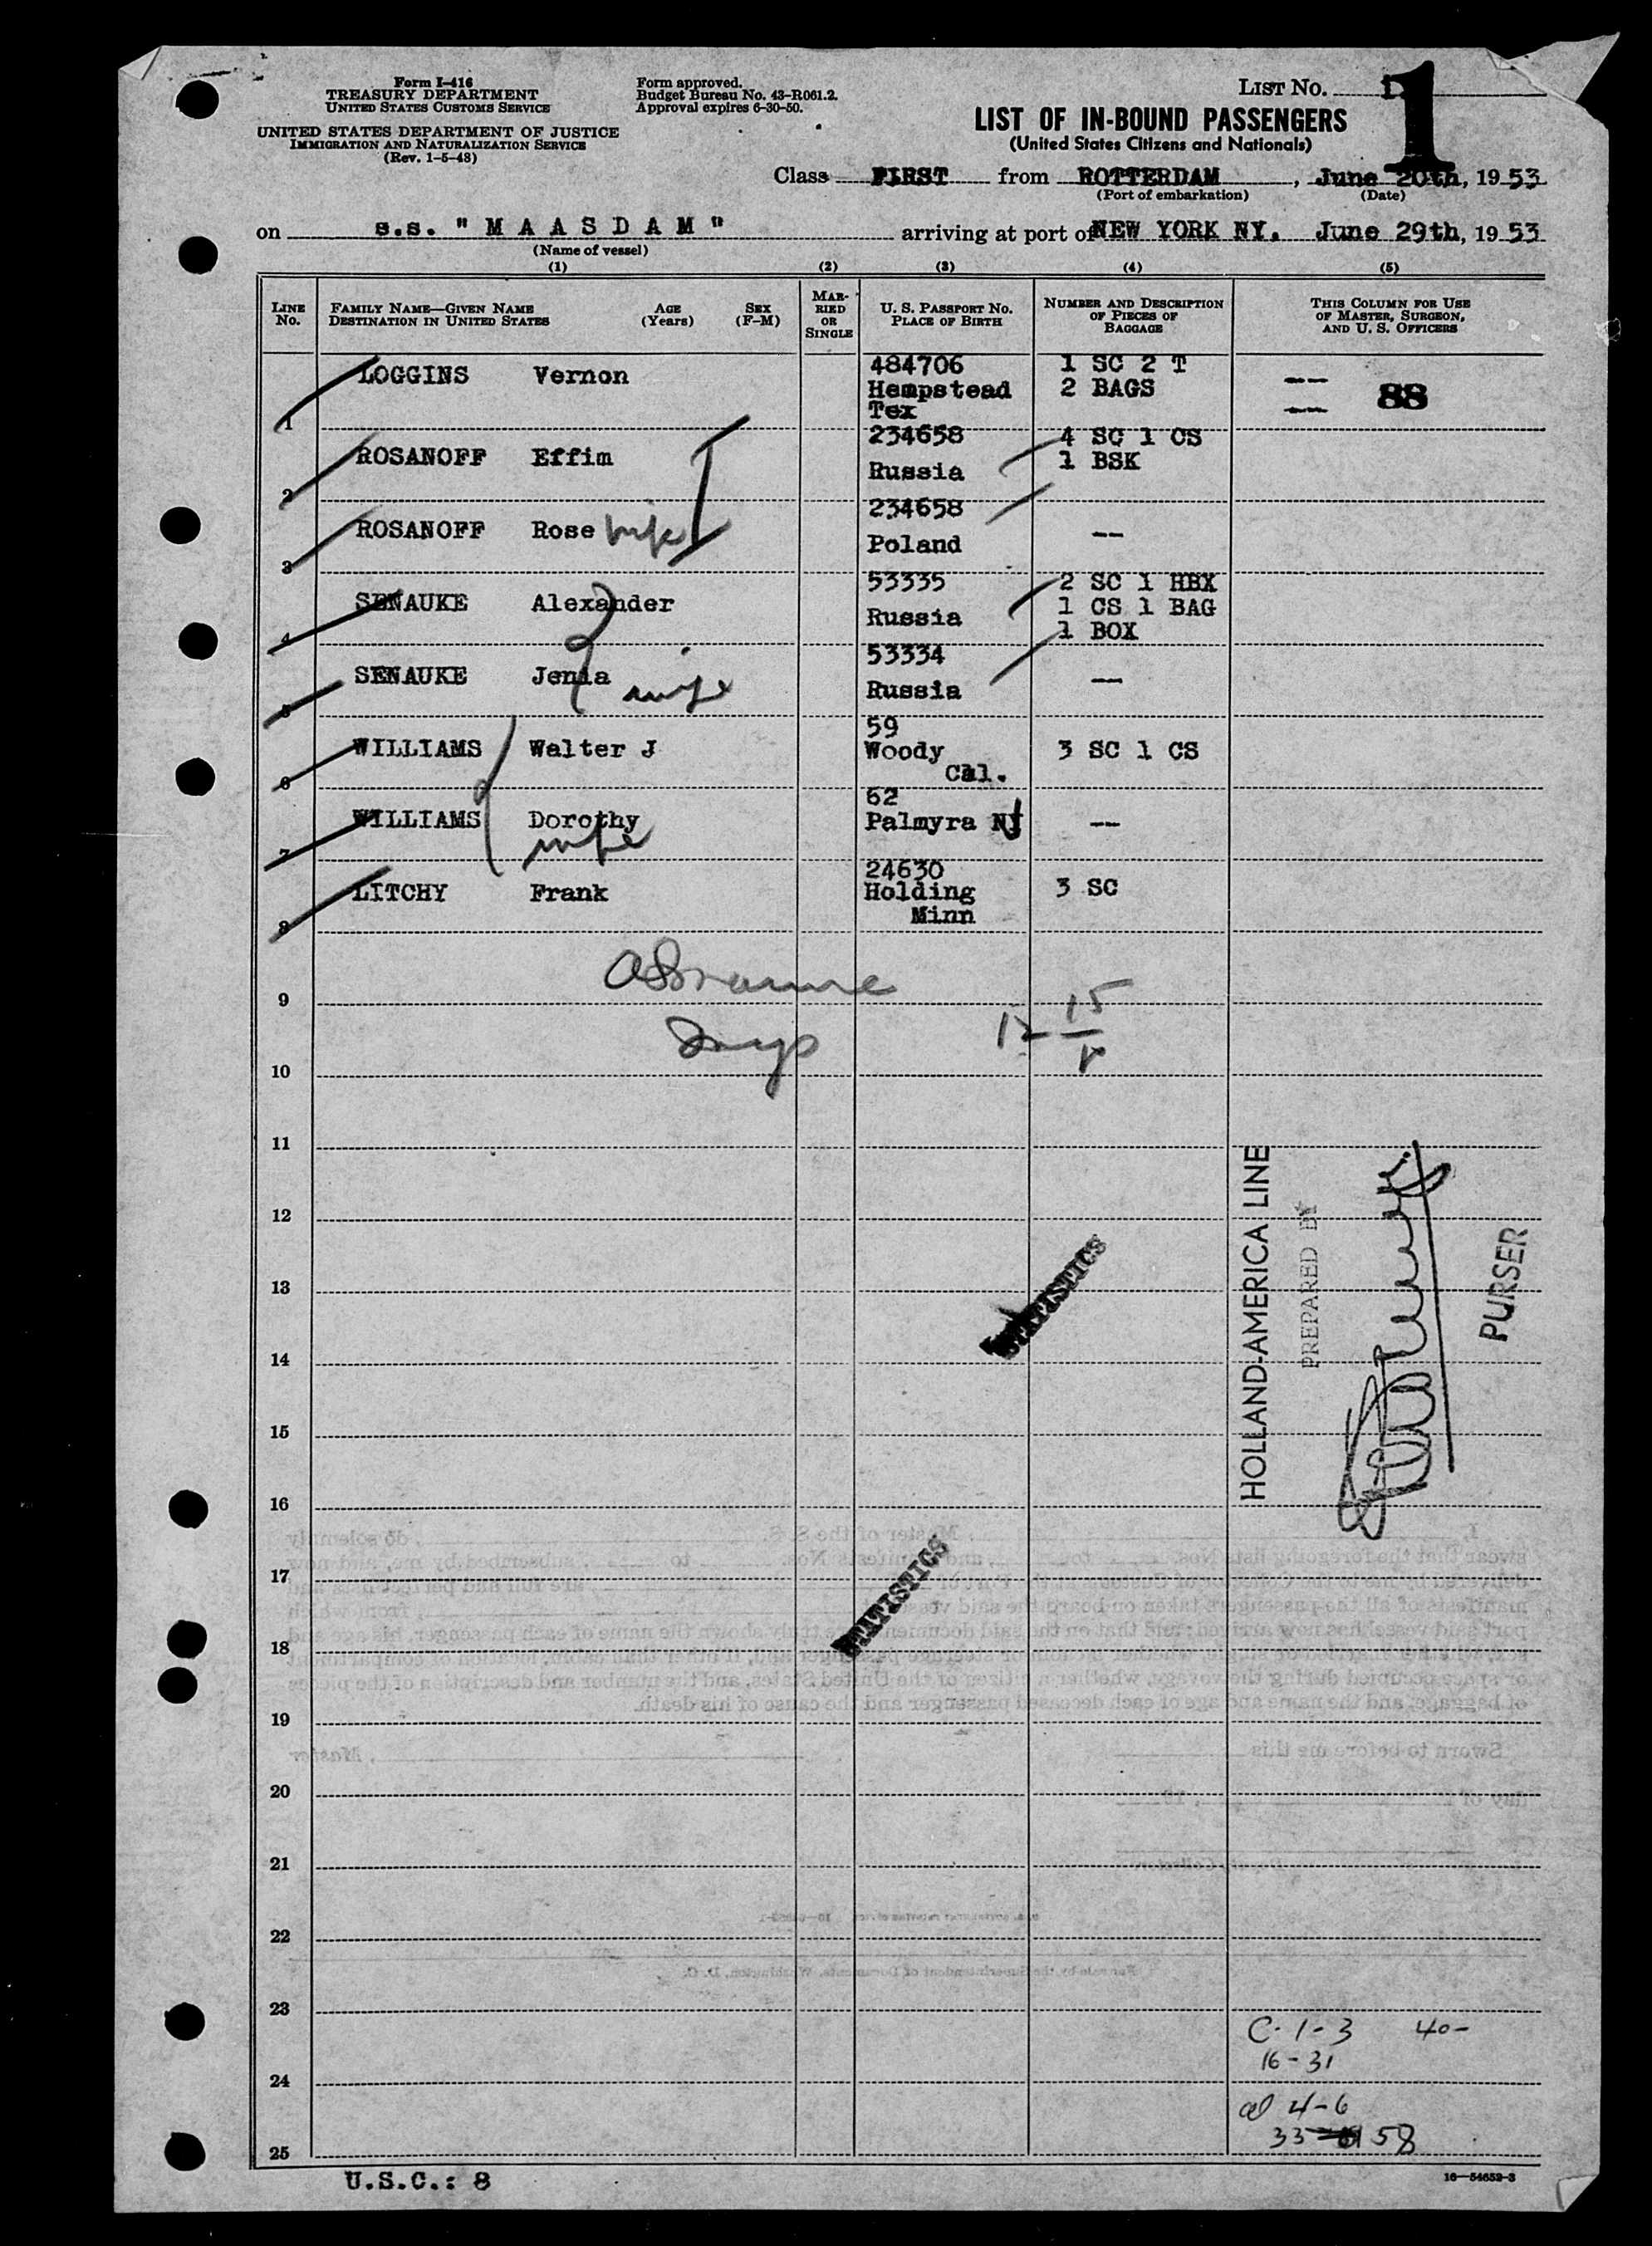 Form I-416
TREASURY DEPARTMENT
UNITED STATES CUSTOMS SERVICE
UNITED STATES DEPARTMENT OF JUSTICE
IMMIGRATION AND NATURALIZATION SERVICE
(Rev. 1-5-48)
Form approved.
Budget Bureau No. 43-R061.2.
Approval expires 6-30-50.
LIST No. 1
1
LIST OF IN-BOUND PASSENGERS
(United States Citizens and Nationals)
Class FIRST from ROTTERDAM, June 20th, 1953
(Port of embarkation) (Date)
on s.s. "MAASDAM" arriving at port of NEW YORK NY. June 29th, 1953
(Name of vessel)
(1) (2) (3) (4) (5)
LINE No. FAMILY NAME—GIVEN NAME DESTINATION IN UNITED STATES AGE (Years) SEX (F-M) MARRIED OR SINGLE U. S. PASSPORT No. PLACE OF BIRTH NUMBER AND DESCRIPTION OF PIECES OF BAGGAGE THIS COLUMN FOR USE OF MASTER, SURGEON, AND U. S. OFFICERS
1 LOGGINS Vernon 484706 Hempstead Tex 1 SC 2 T 2 BAGS -- -- 88
2 ROSANOFF Effim 234658 Russia 4 SC 1 CS 1 BSK
3 ROSANOFF Rose wife 234658 Poland --
4 SENAUKE Alexander 53335 Russia 2 SC 1 HBX 1 CS 1 BAG 1 BOX
5 SENAUKE Jenia wife 53334 Russia --
6 WILLIAMS Walter J 59 Woody Cal. 3 SC 1 CS
7 WILLIAMS Dorothy wife 62 Palmyra NJ --
8 LITCHY Frank 24630 Holding Minn 3 SC
9
10
11
12
13
14
15
16
17
18
19
20
21
22
23
24
25
STATISTICS
STATISTICS
HOLLAND-AMERICA LINE
PREPARED BY
PURSER
C-1-3 40-
16-31
4-6
33 58
U.S.C.: 8
16—54652-3